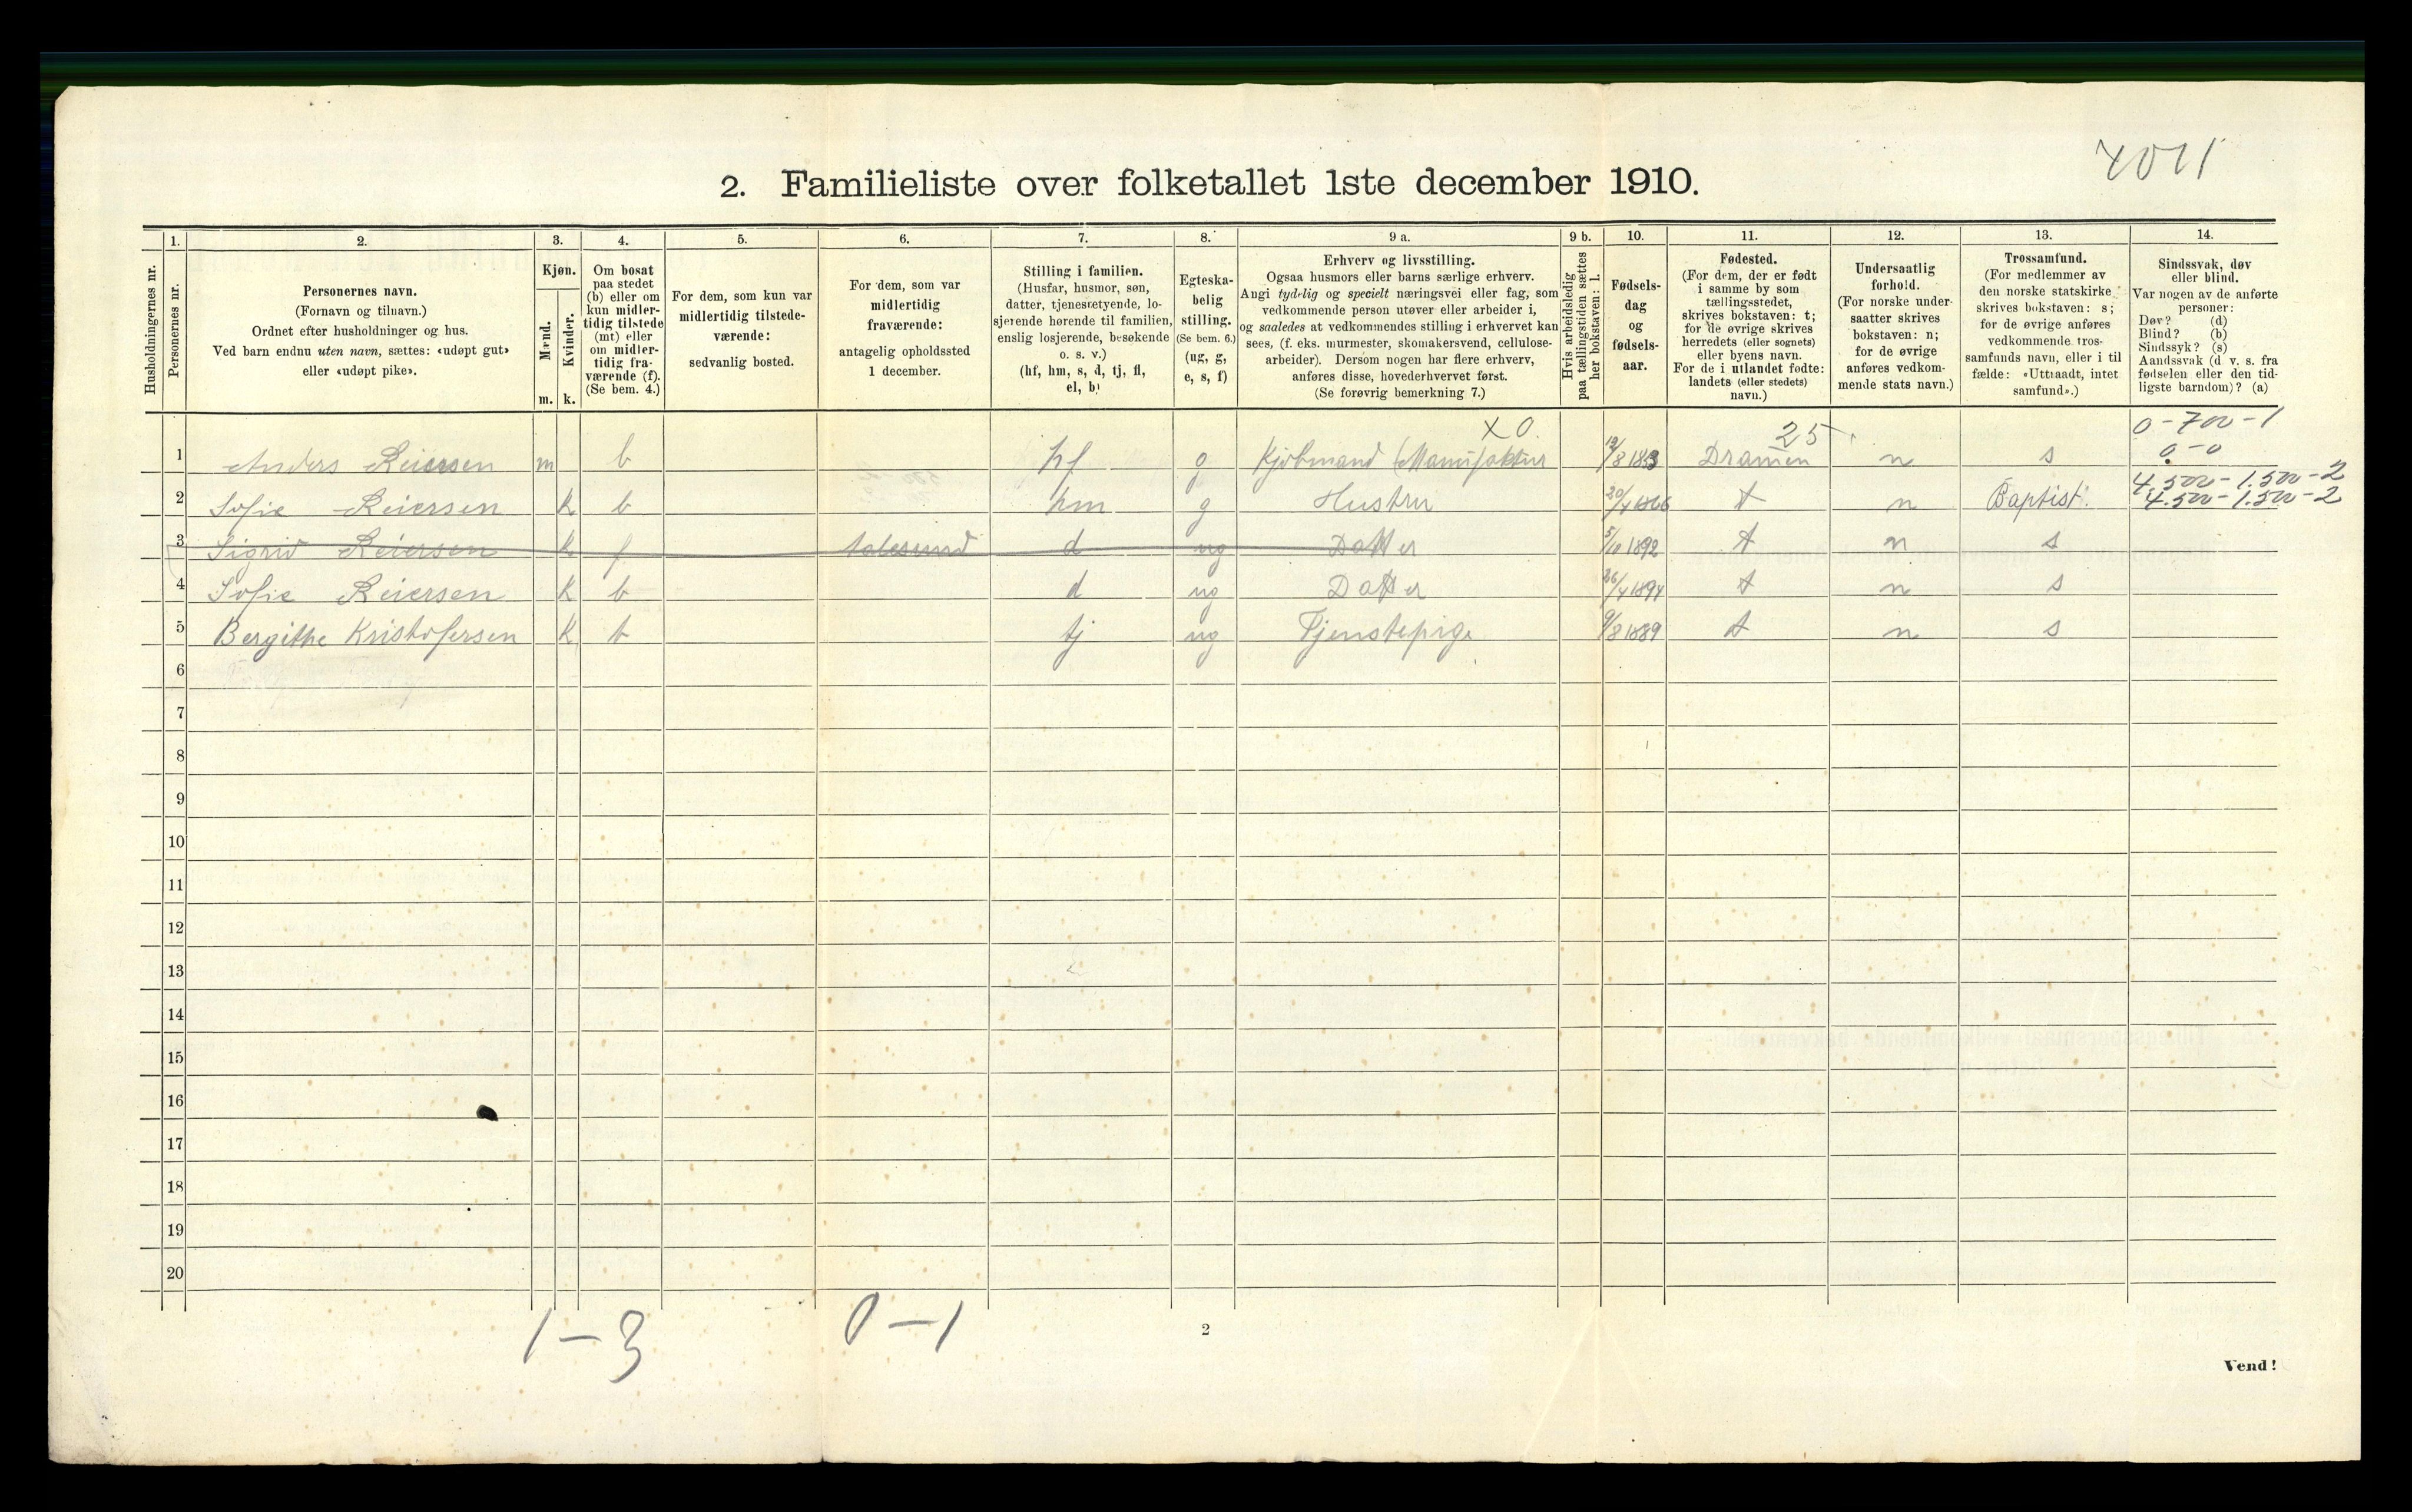 2. Familieliste over folketallet 1ste december 1910.
Husholdningernes nr.
1.
Personernes nr.
2.
Personernes navn.
(Fornavn og tilnavn.)
Ordnet efter husholdninger og hus.
Ved barn endnu uten navn, sættes: «udøpt gut»
eller «udøpt pike».
3.
Kjøn.
Mænd.
Kvinder.
m. k.
4.
Om bosat
paa stedet
(b) eller om
kun midler-
tidig tilstede
(mt) eller
om midler-
tidig fra-
værende (f).
(Se bem. 4.)
5.
For dem, som kun var
midlertidig tilstede-
værende:
sedvanlig bosted.
6.
For dem, som var
midlertidig
fraværende:
antagelig opholdssted
1 december.
7.
Stilling i familien.
(Husfar, husmor, søn,
datter, tjenestetyende, lo-
sjerende hørende til familien,
enslig losjerende, besøkende
o. s. v.)
(hf, hm, s, d, tj, fl,
el, b)
8.
Egteska-
belig
stilling.
(Se bem. 6.)
(ug, g,
e, s, f)
9 a.
Erhverv og livsstilling.
Ogsaa husmors eller barns særlige erhverv.
Angi tydelig og specielt næringsvei eller fag, som
vedkommende person utøver eller arbeider i,
og saaledes at vedkommendes stilling i erhvervet kan
sees, (f. eks. murmester, skomakersvend, cellulose-
arbeider). Dersom nogen har flere erhverv,
anføres disse, hovederhvervet først.
(Se forøvrig bemerkning 7.)
9 b.
Hvis arbeidsledig
paa tællingstiden sættes
her bokstaven: l.
10.
Fødsels-
dag
og
fødsels-
aar.
11.
Fødested.
(For dem, der er født
i samme by som
tællingsstedet,
skrives bokstaven: t;
for de øvrige skrives
herredets (eller sognets)
eller byens navn.
For de i utlandet fødte:
landets (eller stedets)
navn.)
12.
Undersaatlig
forhold.
(For norske under-
saatter skrives
bokstaven: n;
for de øvrige
anføres vedkom-
mende stats navn.)
13.
Trossamfund.
(For medlemmer av
den norske statskirke
skrives bokstaven: s;
for de øvrige anføres
vedkommende tros-
samfunds navn, eller i til
fælde: «Uttraadt, intet
samfund».)
14.
Sindssvak, døv
eller blind.
Var nogen av de anførte
personer:
Døv? (d)
Blind? (b)
Sindssyk? (s)
Aandssvak (d. v. s. fra
fødselen eller den tid-
ligste barndom)? (a)
X 0. 25 0-700-1
1 Anders Reiersen m b hf g Kjøbmand (Manufaktur Dramen n s 0-0
4.500-1.500-2
2 Sofie Reiersen k b hm g Hustru 20/4 1866 t n Baptist. 4.500-1.500-2
3 Sigrid Reiersen k f Aalesund d ug Datter 5/10 1892 t n s
4 Sofie Reiersen k b d ug Datter 26/4 1894 t n s
5 Bergithe Kristofersen k b tj ug Tjenstepige 9/8 1889 t n s
6
7
8
9
10
11
12
13
14
15
16
17
18
19
20
1-3 0-1
2
Vend!